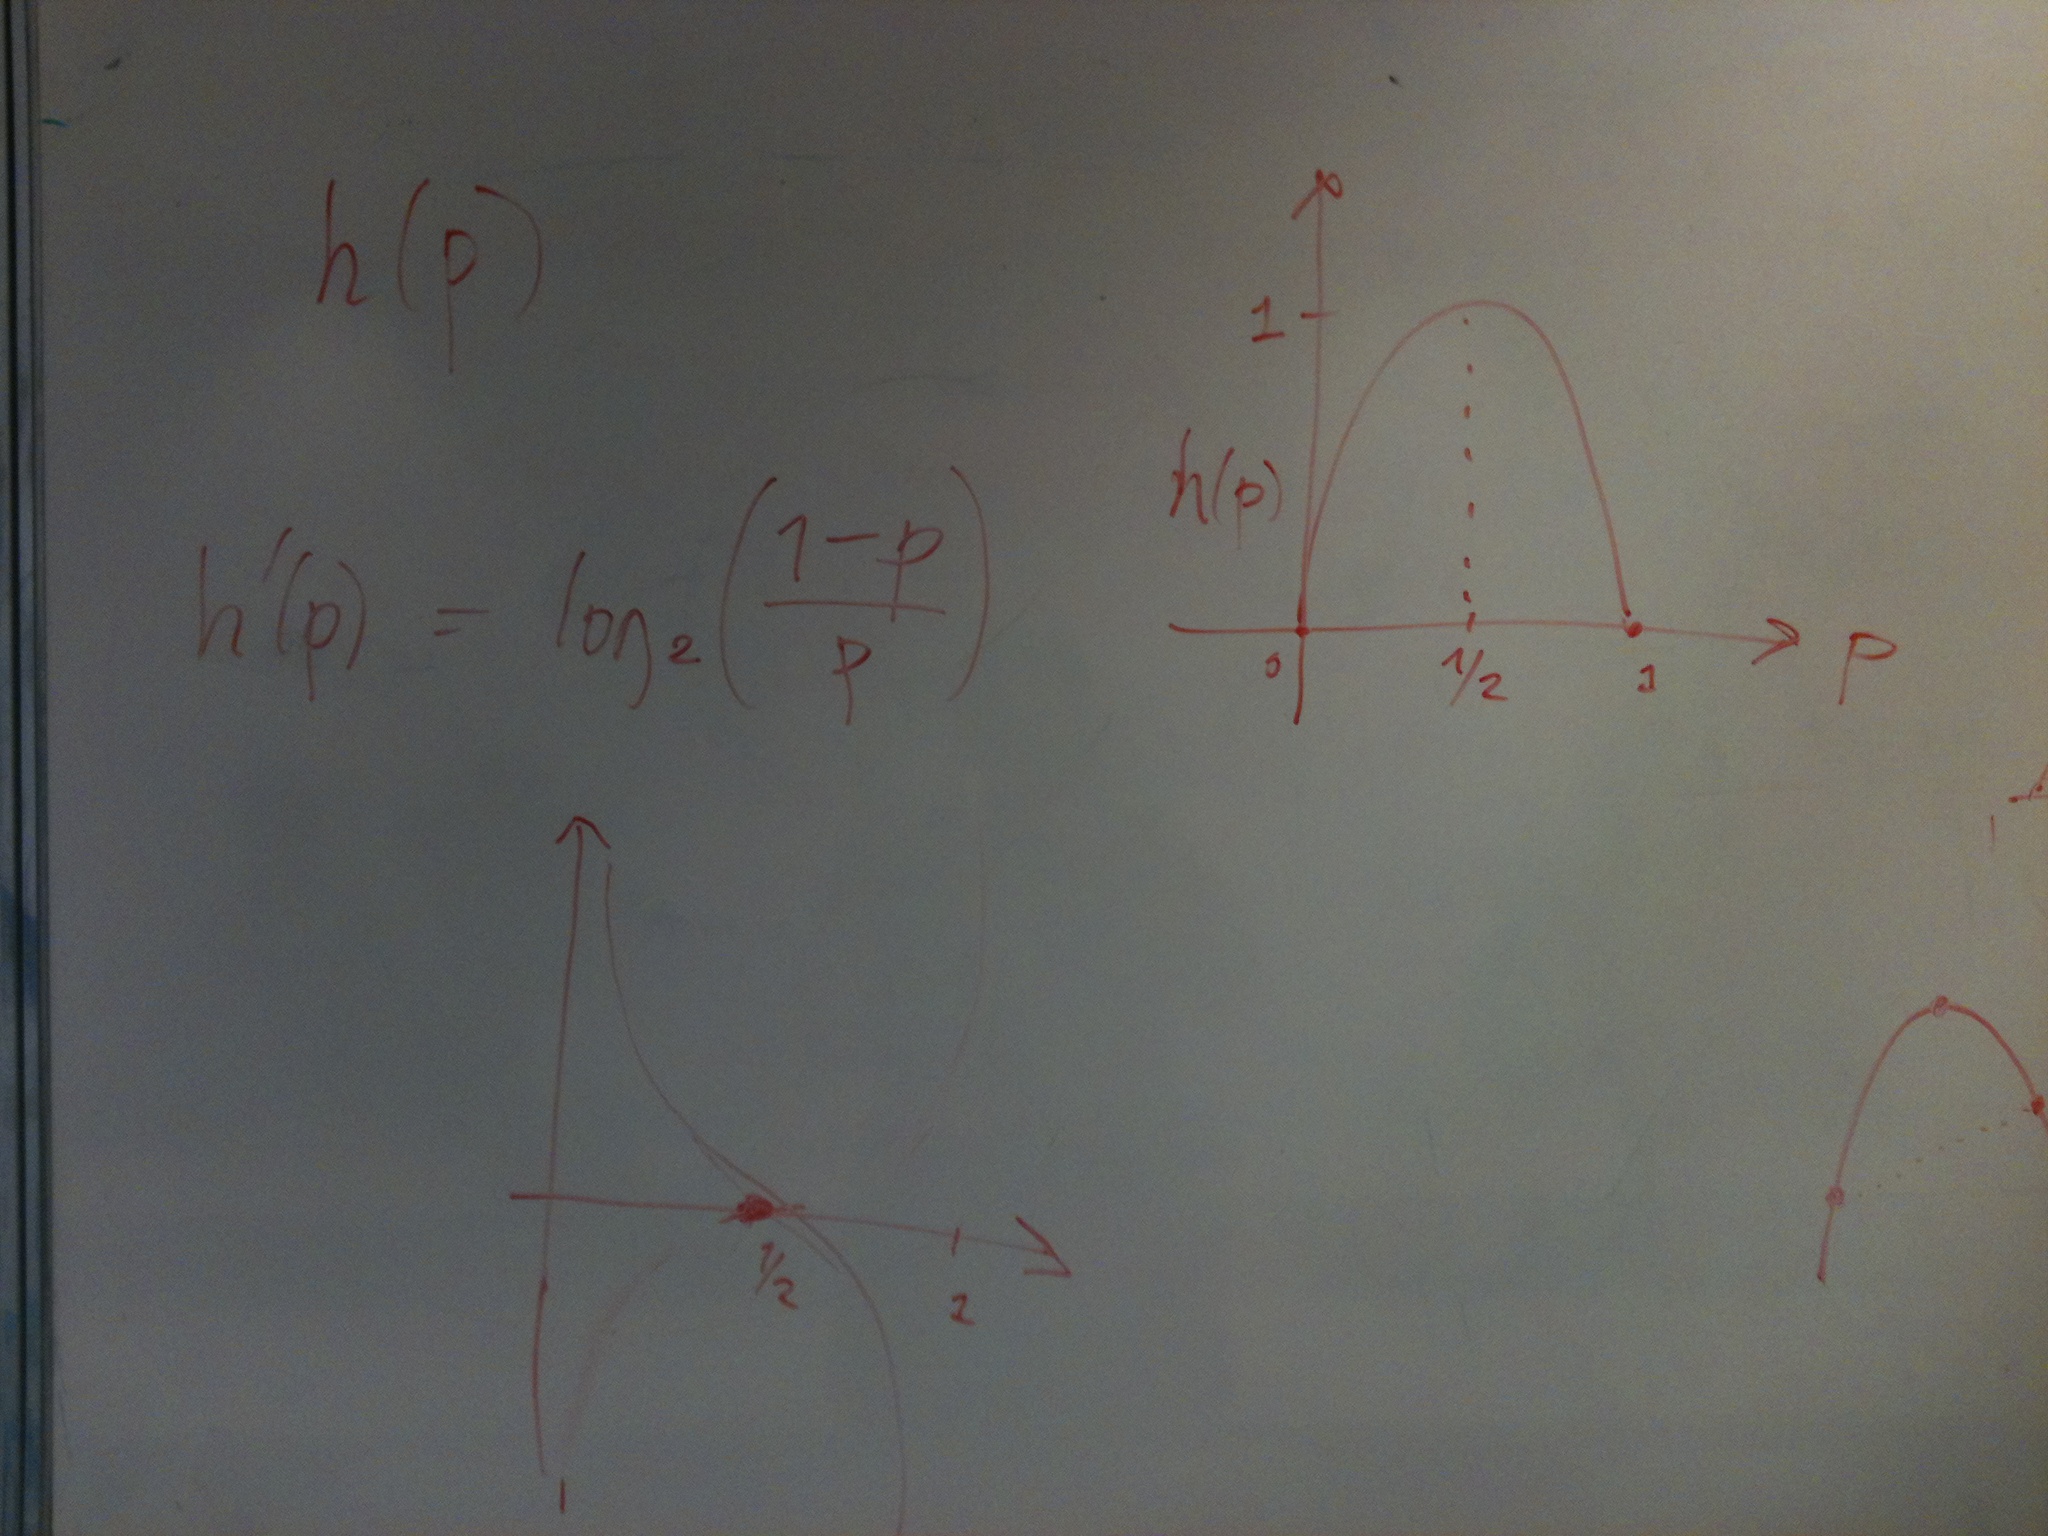 h(p)
h'(p) = log₂((1-p)/p)
1
h(p)
0 1/2 1 p
1/2 1